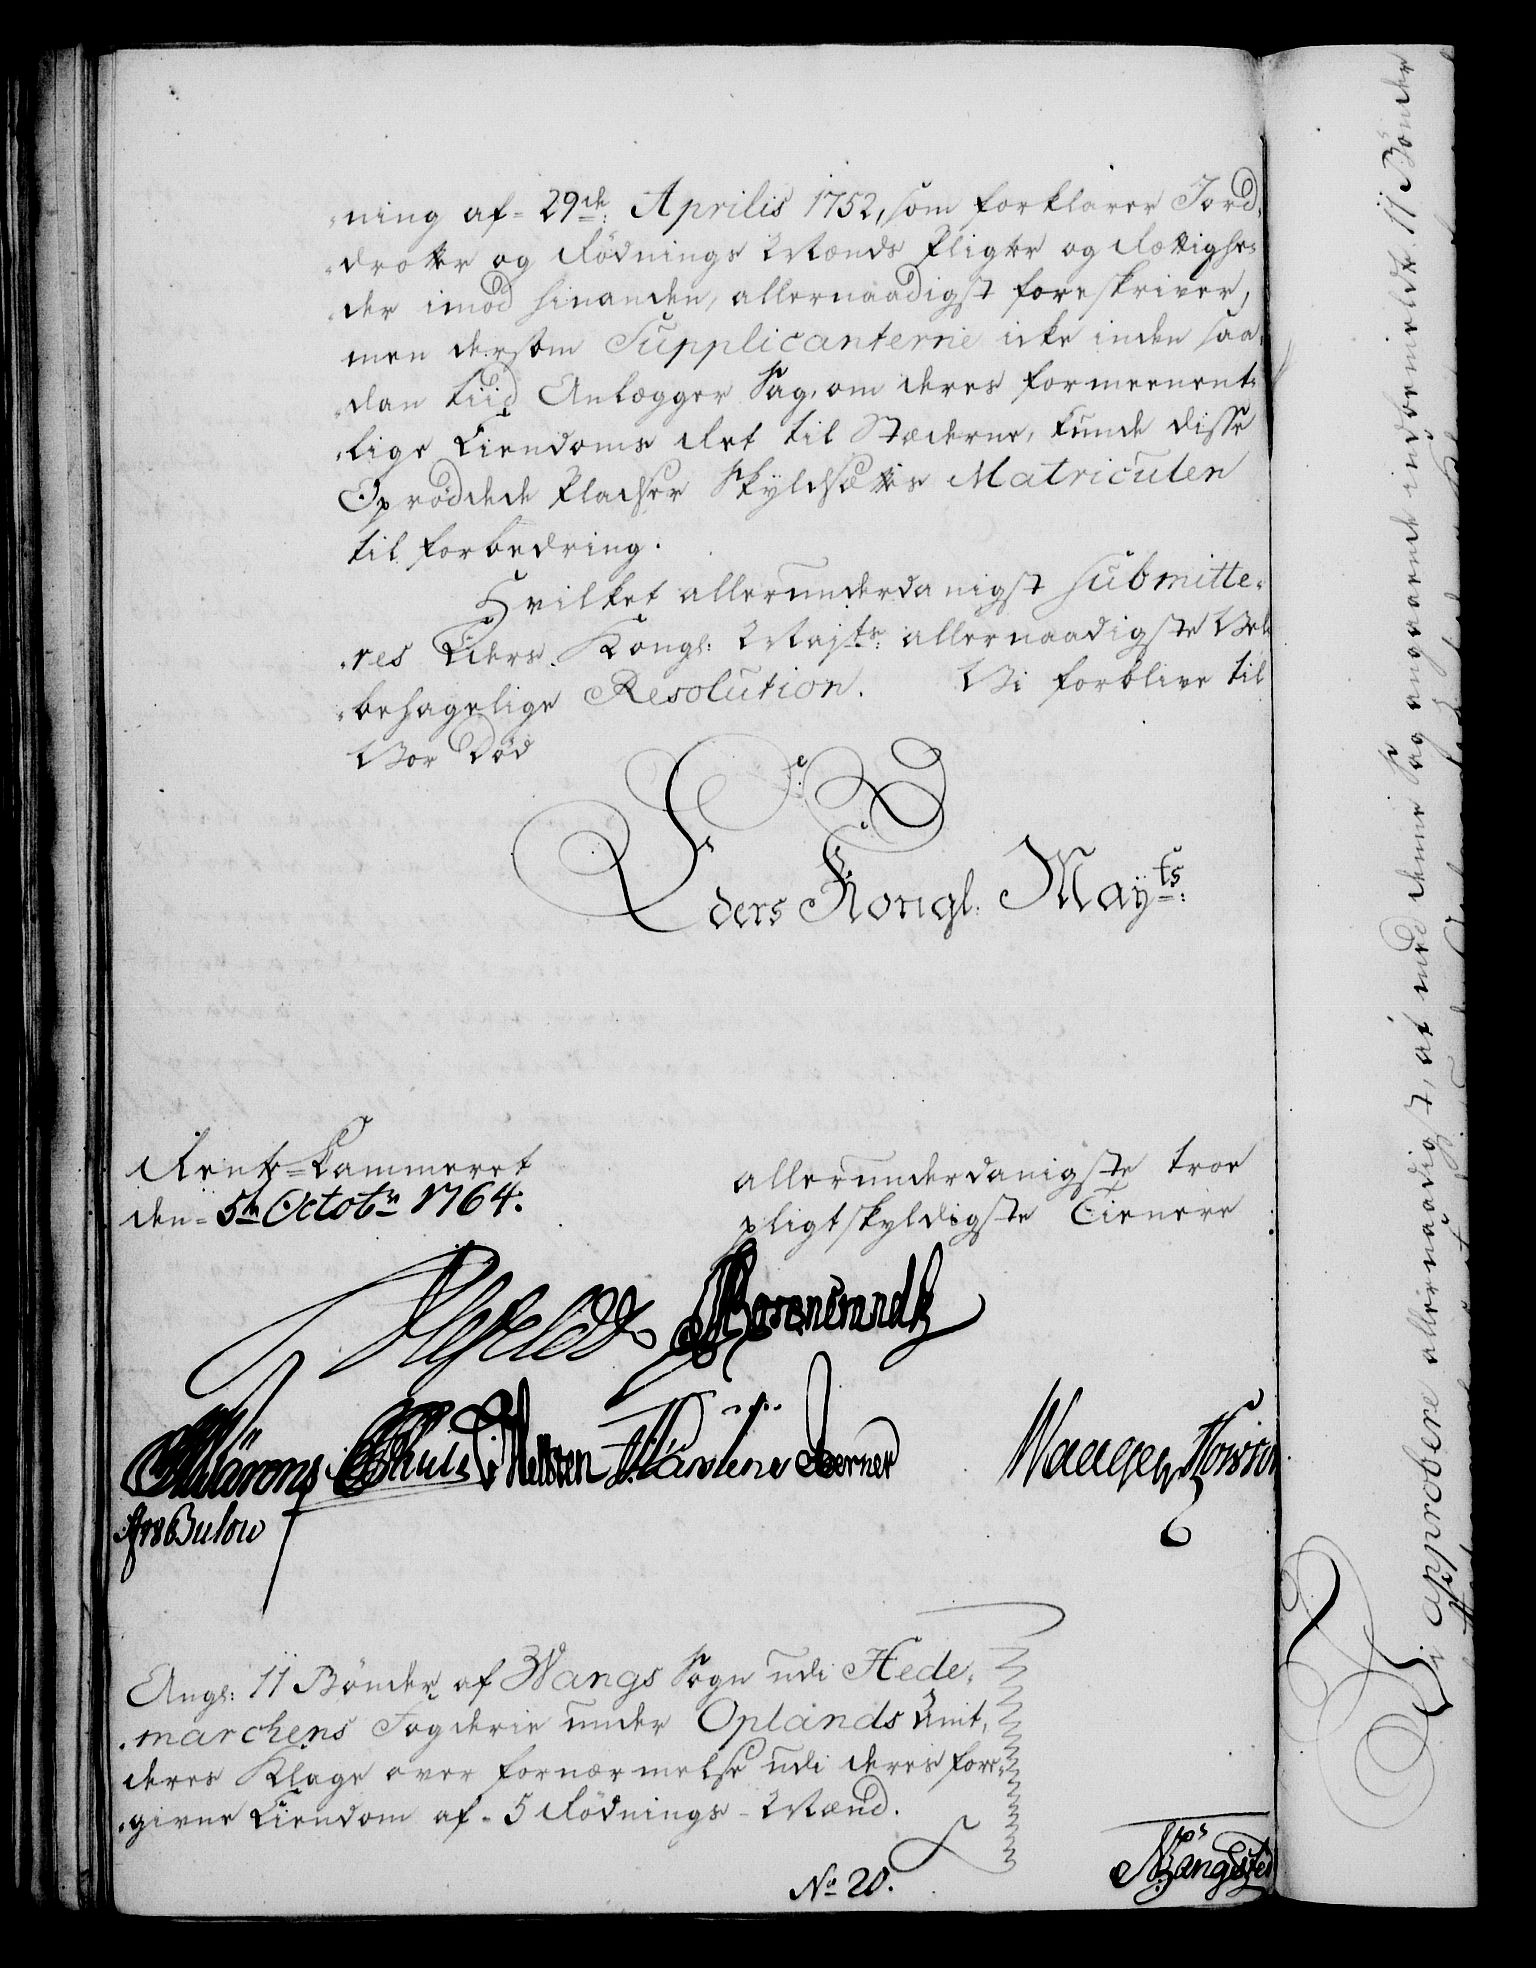 ning af 29de Aprilis 1752, som forklarer Jord-
drotter og Rødnings Mænds Pligter og Rettighe-
der imod hinanden, allernaadigst foreskriver,
men dersom Supplicanterne icke inden saa-
dan Tiid Anlægger Sag, om deres formeenent-
lige Eiendoms Ret til Stæderne, kunde disse
Oprøddede Pladser Skyldsættes Matriculen
til forbedring.
Hvilket allerunderdanigst submitte-
res Eders Kongl: Majts: allernaadigste Vel-
behagelige Resolution. Vi forblive til
Vor Død
Eders Kongl. Mayts:
Rente-Kammeret
den 5te Octobr 1764.
allerunderdanigste troe
pligtskyldigste Tienere
Ahlefeldt
Rosencrandtz
Schulz
Berner
Bulow
Angl: 11 Bønder af Wangs Sogn udi Hede-
marchens Fogderie under Oplands Amt,
deres Klage over fornærmelse udi deres fore-
givne Eiendom af 5 Rødnings-Mænd.
No 20.
Vi approbere allernaadigst, at med denne Sag angaaende indbemeldte 11 Bønder